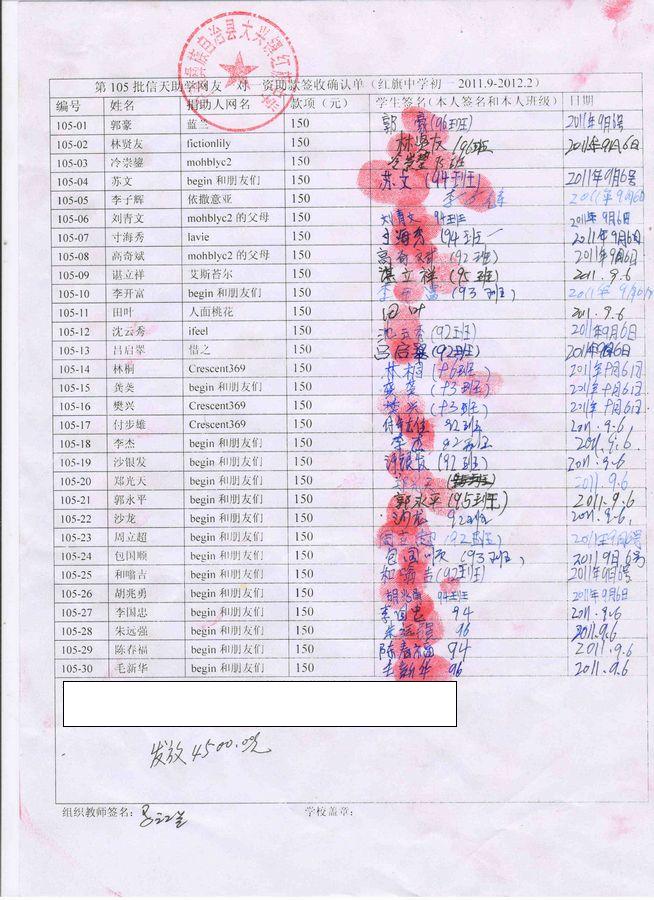 第 105 批信天助学网友 对 资助款签收确认单（红旗中学初一 2011.9-2012.2）
编号 姓名 捐助人网名 款项（元） 学生签名（本人签名和本人班级） 日期
105-01 郭豪 蓝兰 150 郭豪（96班） 2011年9月6号
105-02 林贤友 fictionlily 150 林贤友 196班 2011年9月6日
105-03 冷崇鎣 mohblyc2 150
105-04 苏文 begin 和朋友们 150 苏文（94班） 2011年9月6号
105-05 李子辉 依撒意亚 150 2011年9月6日
105-06 刘青文 mohblyc2 的父母 150 刘青文 94班 2011年9月6日
105-07 寸海秀 lavie 150 寸海秀（94班） 2011年9月6日
105-08 高奇斌 mohblyc2 的父母 150 高奇斌（92班） 2011年9月6日
105-09 谌立祥 艾斯苔尔 150 谌立祥（95班） 2011.9.6
105-10 李开富 begin 和朋友们 150 李开富（93班） 2011年9月6日
105-11 田叶 人面桃花 150 田叶 2011.9.6
105-12 沈云秀 ifeel 150 沈云秀（92班） 2011年9月6日
105-13 吕启翠 惜之 150 吕启翠（92班） 2011年9月6日
105-14 林桐 Crescent369 150 林桐（96班） 2011年9月6日
105-15 龚类 begin 和朋友们 150 （93班） 2011年9月6日
105-16 樊兴 Crescent369 150 樊兴（93班） 2011年9月6日
105-17 付步雄 Crescent369 150 92班 2011.9.6
105-18 李杰 begin 和朋友们 150 李杰 92班 2011.9.6
105-19 沙银发 begin 和朋友们 150 沙银发（92班） 2011.9.6
105-20 郑光天 begin 和朋友们 150 2011.9.6
105-21 郭永平 begin 和朋友们 150 郭永平（95班） 2011.9.6
105-22 沙龙 begin 和朋友们 150 沙龙 92班 2011.9.6
105-23 周立超 begin 和朋友们 150 周立超（92班） 2011年9月6号
105-24 包国顺 begin 和朋友们 150 包国顺（93班） 2011 9月6号
105-25 和嗡吉 begin 和朋友们 150 （92班） 2011年9月6号
105-26 胡兆勇 begin 和朋友们 150 胡兆勇 94班 2011年9月6日
105-27 李国忠 begin 和朋友们 150 李国忠 94 2011.9.6
105-28 朱远强 begin 和朋友们 150 朱远强 96 2011.9.6
105-29 陈春福 begin 和朋友们 150 陈春福 94 2011.9.6
105-30 毛新华 begin 和朋友们 150 毛新华 96 2011.9.6
发放4500.0元
组织教师签名： 学校盖章：